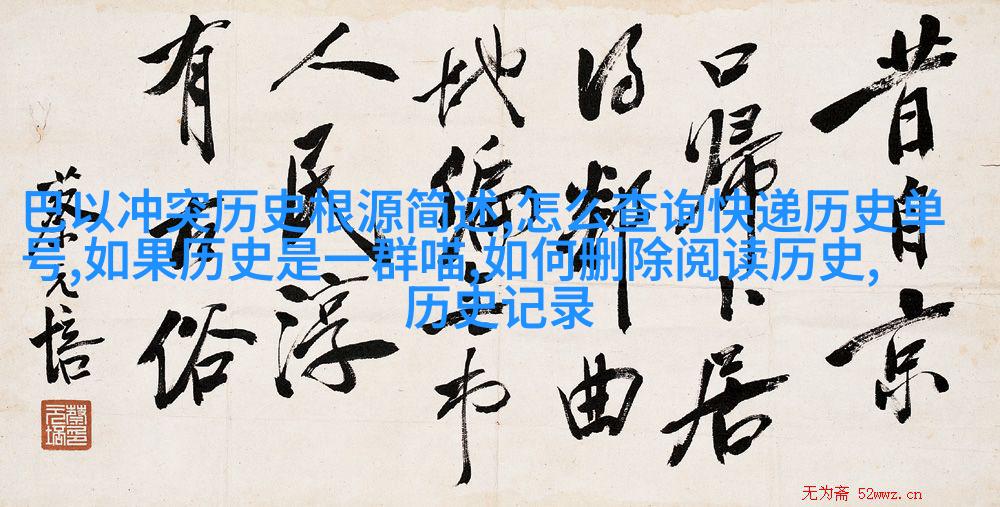 昔自京
口歸卜居
得鄰曲
地偏無市
人民淳
有古俗
蔡元培
巴以冲突历史根源简述,怎么查询快递历史单
号,如果历史是一群喵,如何删除阅读历史,
历史记录
无为斋 52wwz.cn